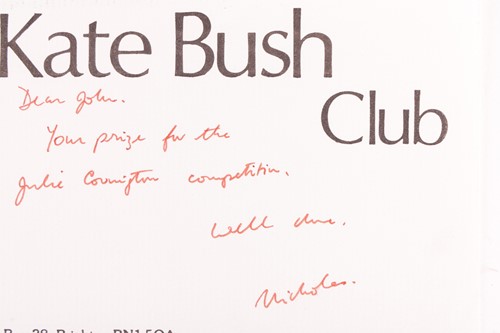 Kate Bush
Club
Dear John.
Your prize for the
Julie Covington competition.
Well done.
Nicholas.